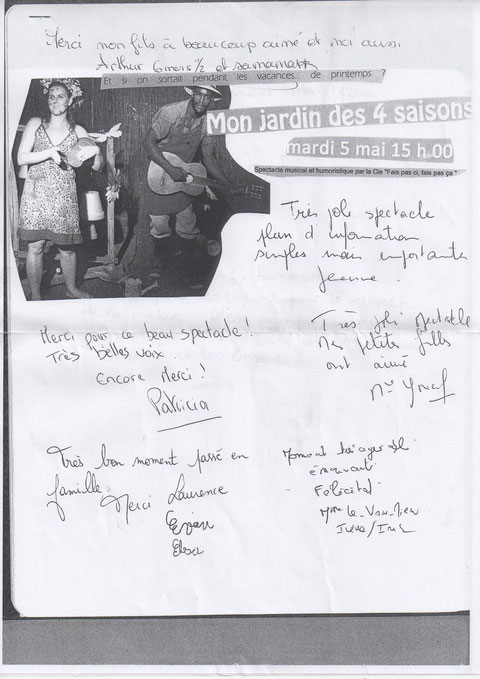 Merci mon fils à beaucoup aimé et moi aussi
Arthur 6 mois 1/2 et sa maman
Et si on sortait pendant les vacances... de printemps...
Mon jardin des 4 saisons
mardi 5 mai 15 h.00
Spectacle musical et humoristique par la Cie "Fais pas ci, fais pas ça"
Très joli spectacle
plein d'information
simples mais importantes
Jeanne.
Merci pour ce beau spectacle!
Très belles voix.
Encore Merci!
Patricia
Très joli spectacle
Mes petites filles
ont aimé
Très bon moment passé en
famille
Merci Laurence
Elsa
Moment très agréable
émouvant
Félicitat°
Mme Le